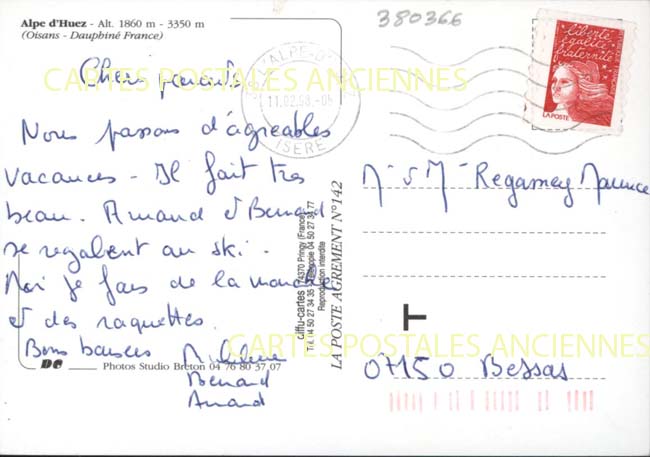 Alpe d'Huez - Alt. 1860 m - 3350 m
(Oisans - Dauphiné France)
380366
Chers parents
CARTES POSTALES ANCIENNES
L'ALPE-D'
11.02.98
ISERE
liberté
égalité
fraternité
LA POSTE
Nous passons d'agréables
vacances - Il fait très
beau. Arnaud et Benard
se regalent au ski.
Moi je fais de la marche
et des raquettes.
Bons baisers
Benard
Arnaud
Mr et Mme Regamey Maurice
07150 Bessas
T
CARTES POSTALES ANCIENNES
DC
Photos Studio Breton 04 76 80 37 07
cliffu-cartes 74370 Pringy (France)
Tél. 04 50 27 34 35 Télécopie 04 50 27 34 77
Reproduction interdite
LA POSTE AGREMENT N° 142